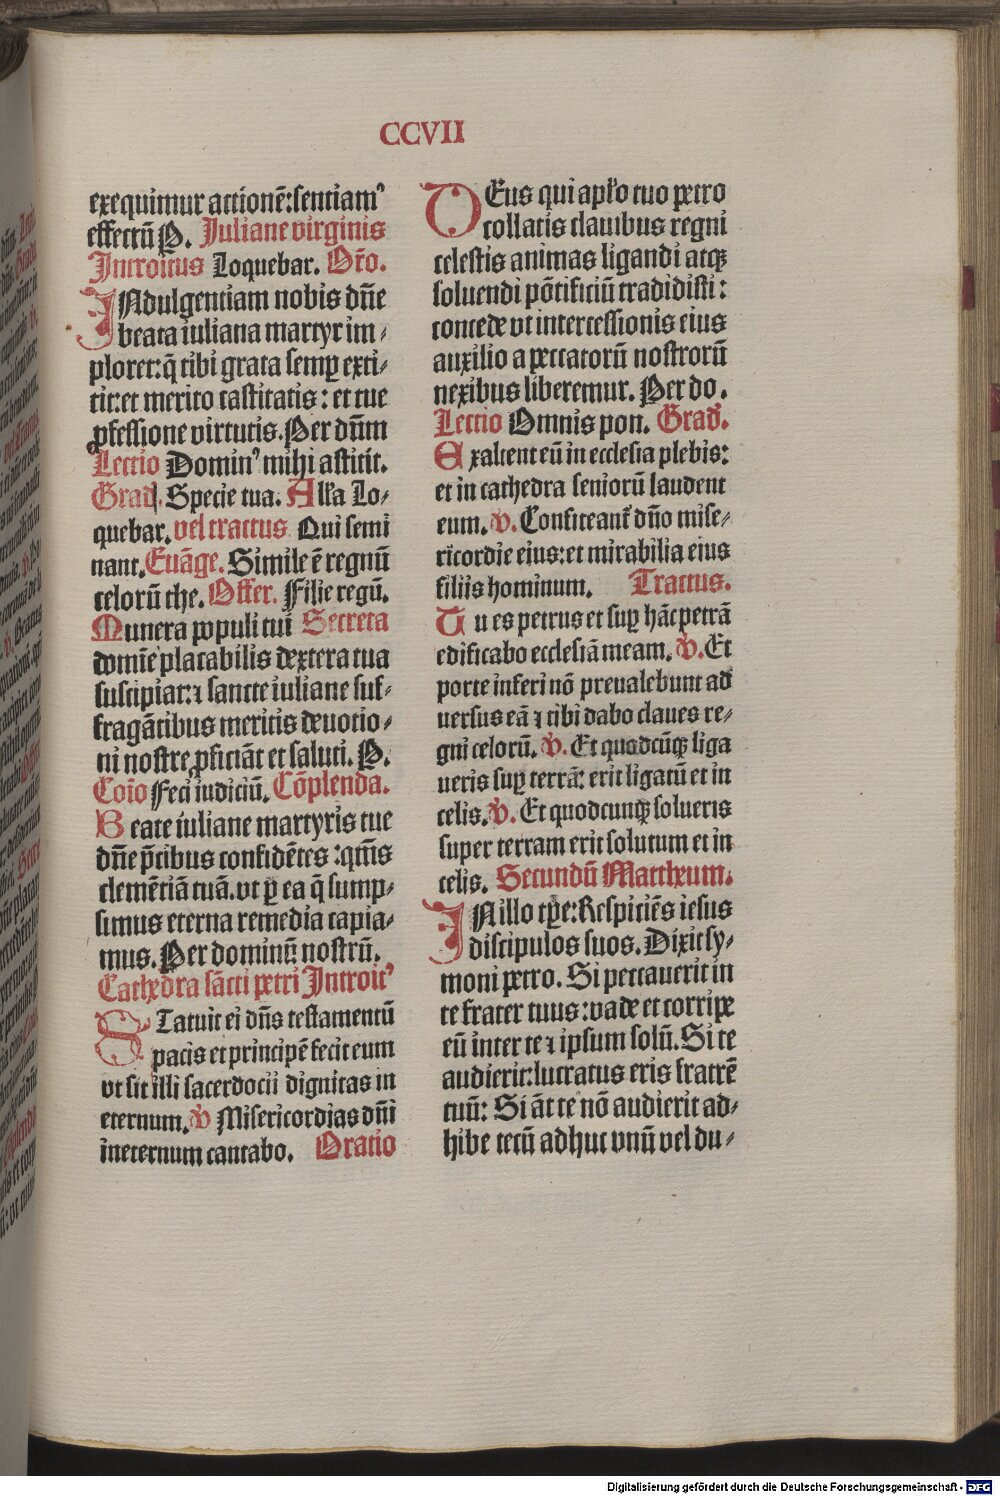 CCVII
exequimur actionē:sentiamꝰ
effectū P. Juliane virginis
Introitus Loquebar. Or̄o.
INdulgentiam nobis dn̄e
beata iuliana martyr im⸗
ploret:q̄ tibi grata semꝑ exti⸗
tit:et merito castitatis: et tue
ꝓfessione virtutis.Per dn̄m
Lectio Dominꝰ mihi astitit.
Grad. Specie tua. All'a Lo⸗
quebar. vel tractus Qui semi
nant. Euāge. Simile ē regnū
celorū the. Offer. Filie regū.
Munera populi tui Secreta
domīe placabilis dextera tua
suscipiat:ꝛ sancte iuliane suf⸗
fragātibus meritis deuotio⸗
ni nostre ꝓficiāt et saluti. P.
Coīo Feci iudiciū. Cōplenda.
Beate iuliane martyris tue
dn̄e p̄cibus confidētes :qm̄s
clemētiā tuā.vt ꝑ ea q̄ sump⸗
simus eterna remedia capia⸗
mus. Per dominū nostrū.
Cathedra sācti petri Introitꝰ
STatuit ei dn̄s testamentū
pacis et principē fecit eum
vt sit illi sacerdocii dignitas in
eternum. V̄ Misericordias dn̄i
ineternum cantabo. Oratio
DEus qui apl'o tuo petro
collatis clauibus regni
celestis animas ligandi atqꝫ
soluendi pōtificiū tradidisti:
concede vt intercessionis eius
auxilio a peccatorū nostrorū
nexibus liberemur. Per do.
Lectio Omnis pon. Grad'.
Exaltent eū in ecclesia plebis:
et in cathedra seniorū laudent
eum. V. Confiteant' dn̄o mise⸗
ricordie eius:et mirabilia eius
filiis hominum. Tractus.
Tu es petrus et suꝑ hāc petrā
edificabo ecclesiā meam. V̄.Et
porte inferi nō preualebunt ad
uersus eā ꝛ tibi dabo claues re⸗
gni celorū. V̄. Et quodcūqꝫ liga
ueris suꝑ terrā: erit ligatū et in
celis. V̄. Et quodcunqꝫ solueris
super terram erit solutum et in
celis. Secundū Mattheum.
IN illo tꝑe:Respiciēs iesus
discipulos suos. Dixit sy⸗
moni petro. Si peccauerit in
te frater tuus :vade et corripe
eū inter te ꝛ ipsum solū. Si te
audierit:lucratus eris fratrē
tuū: Si āt te nō audierit ad⸗
hibe tecū adhuc vnū vel du⸗
Digitalisierung gefördert durch die Deutsche Forschungsgemeinschaft - DFG